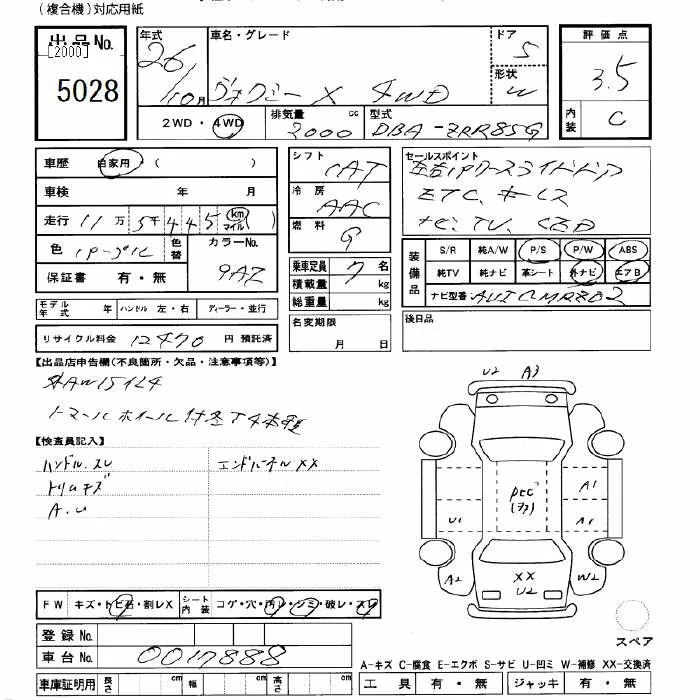 (複合機)対応用紙
出品No.
[2000]
5028
年式 26/10月
車名・グレード ヴォクシー X 4WD
ドア 5
形状 W
評価点 3.5
内装 C
2WD・4WD
排気量 2000 cc
型式 DBA-ZRR85G
車歴 自家用・( )
車検 年 月
走行 11万5千445 km マイル( )
色 パープル 色替 カラーNo. 9AZ
保証書 有・無
シフト CAT
冷房 AAC
燃料 G
乗車定員 7 名
積載量 kg
総重量 kg
名変期限 月 日
セールスポイント
左右Pワースライドドア
ETC、キーレス
ナビ、TV、
装備品 S/R 純A/W P/S P/W ABS
純TV 純ナビ 革シート 外ナビ エアB
ナビ型番
後日品
モデル年式 ハンドル 左・右 ディーラー・並行
リサイクル料金 12470 円 預託済
【出品店申告欄(不良箇所・欠品・注意事項等)】
外AW15インチ
ノーマルホイール付
【検査員記入】
ハンドル、スレ エンドパネルXX
トリムキズ
A.U
U2 A3
A1
U1 A1
A2 XX W2
U2
FW キズ・トビ石・割レX シート内装 コゲ・穴・汚レ・シミ・破レ・スレ
登録No.
車台No. 0017888
車庫証明用 長さ cm 幅 cm 高さ cm
スペア
A-キズ C-腐食 E-エクボ S-サビ U-凹ミ W-補修 XX-交換済
工具 有・無 ジャッキ 有・無